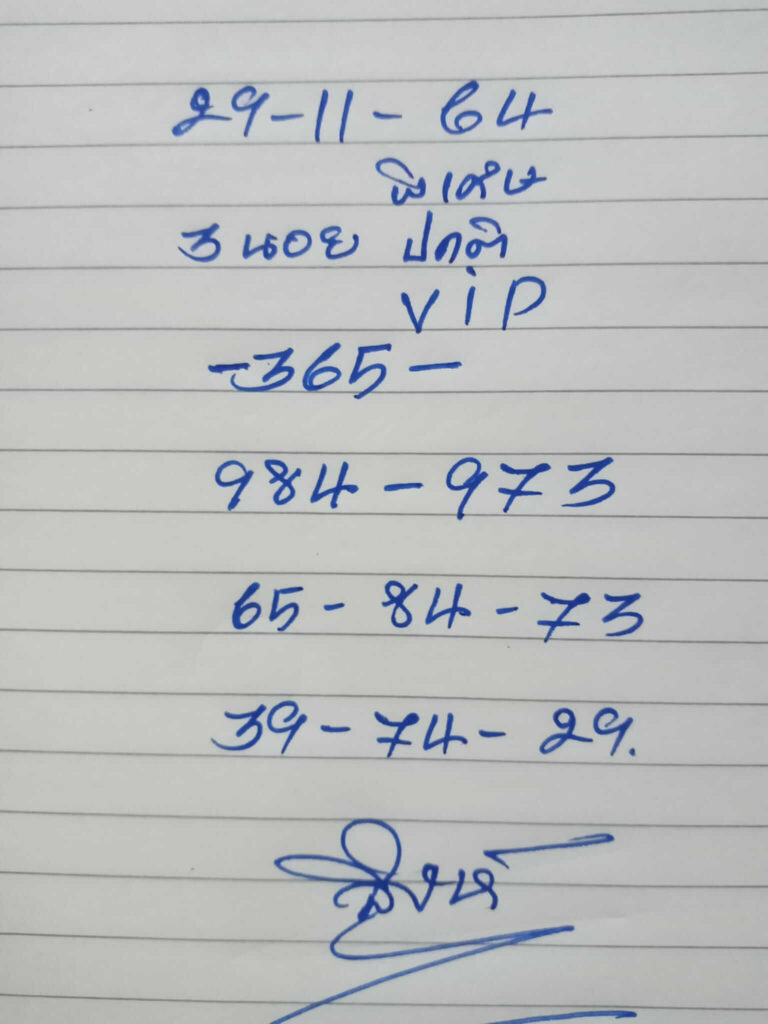 29-11-64
พิเศษ
3 นอย ปกติ
VIP
-365-
984-973
65-84-73
39-74-29.
สิงห์